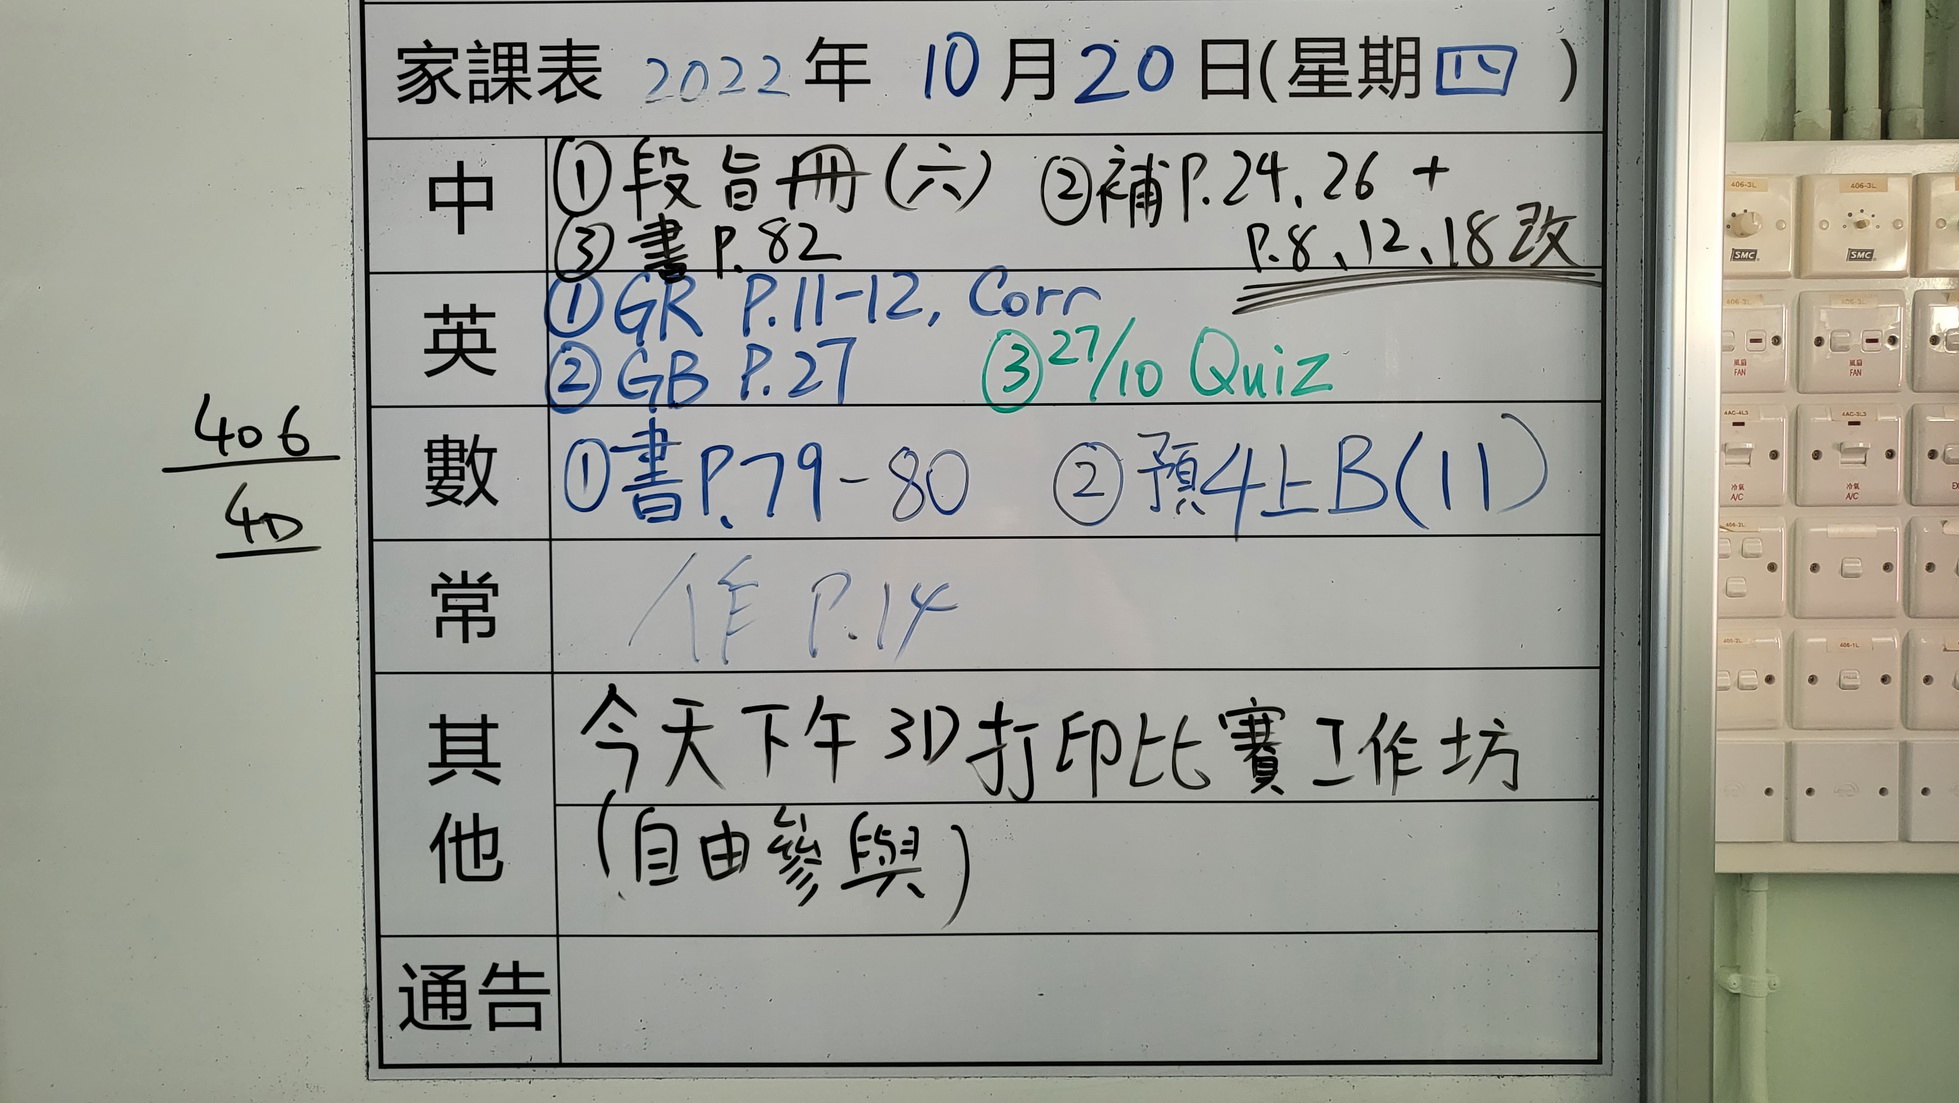 家課表 2022年 10月20日(星期四)
中
①段旨冊(六) ②補P.24、26 +
③書P.82 P.8、12、18改
英
①GR P.11-12, Corr
②GB P.27 ③27/10 Quiz
數
①書P.79-80 ②預4上B(11)
常
作P.14
其他
今天下午3D打印比賽工作坊
(自由參與)
通告
406
4D
406-3L
406-3L
SMC
SMC
風扇
FAN
風扇
FAN
4AC-4L3
4AC-3L3
冷氣
A/C
冷氣
A/C
406-1L